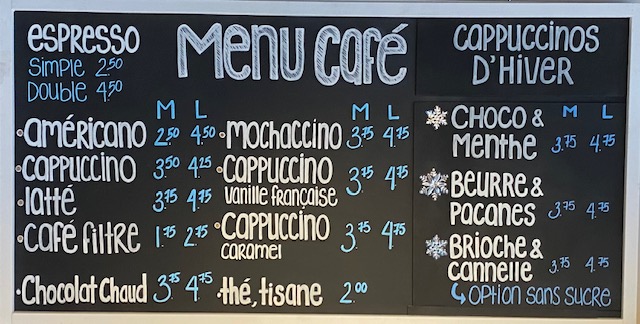 Menu café
espresso
Simple 2.50
Double 4.50
M L
américano 2.50 4.50
cappuccino 3.50 4.25
latté 3.75 4.75
café filtre 1.75 2.75
Chocolat Chaud 3.75 4.75
M L
mochaccino 3.75 4.75
cappuccino
vanille française 3.75 4.75
cappuccino
caramel 3.75 4.75
thé, tisane 2.00
cappuccinos
d'hiver
M L
choco &
menthe 3.75 4.75
Beurre &
pacanes 3.75 4.75
Brioche &
cannelle 3.75 4.75
option sans sucre